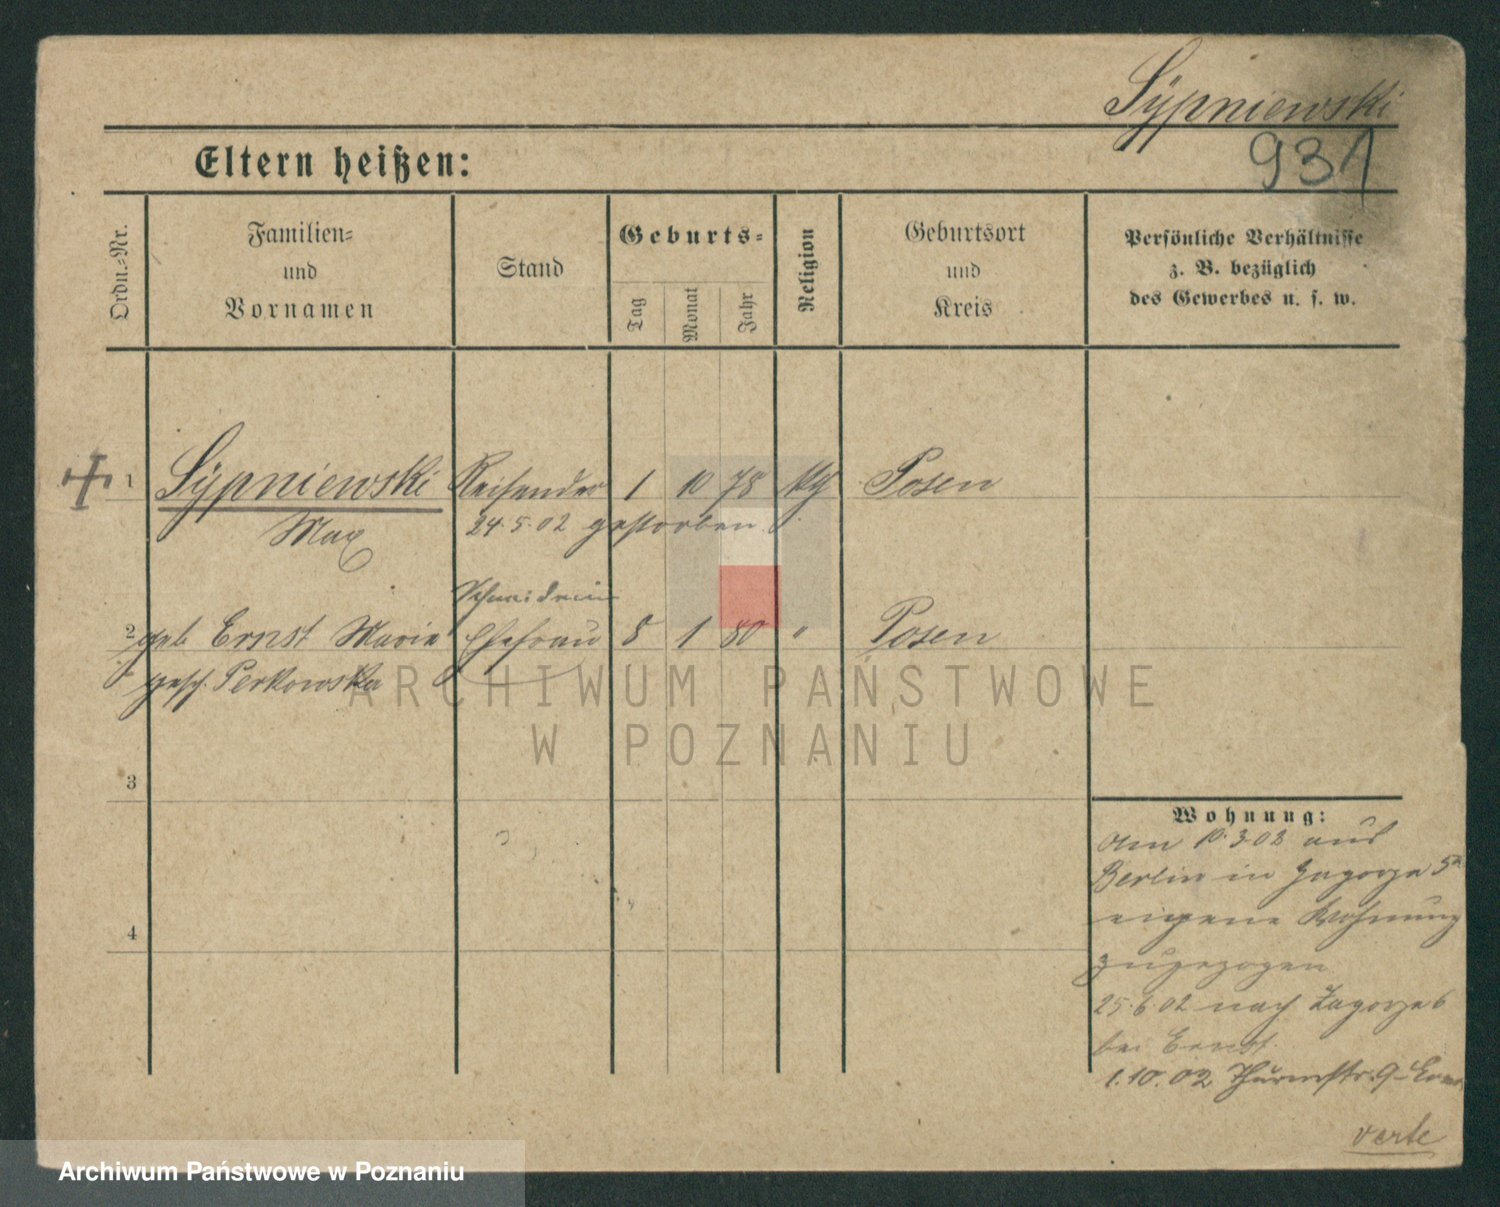 Sÿpniewski
931
Eltern heißen:
Ordn.-Nr.
Familien- und Vornamen
Stand
Geburts-
Tag
Monat
Jahr
Religion
Geburtsort und Kreis
Persönliche Verhältnisse
z. B. bezüglich
des Gewerbes u. s. w.
1 Sÿpniewski Reisender 1 10 78 Posen
Max 24.5.02 gestorben.
Schneiderin
2 geb Ernst Marie Ehefrau 8 1 80 " Posen
gesch. Perkowska
ARCHIWUM PAŃSTWOWE
W POZNANIU
3
4
Wohnung:
am 10.3.02 aus
Berlin in Zagorze 5a
eigene Wohnung
zugezogen
25.6.02 nach Zagorze 6
bei Ernst.
1.10.02 Thurmstr. 9
verte
Archiwum Państwowe w Poznaniu